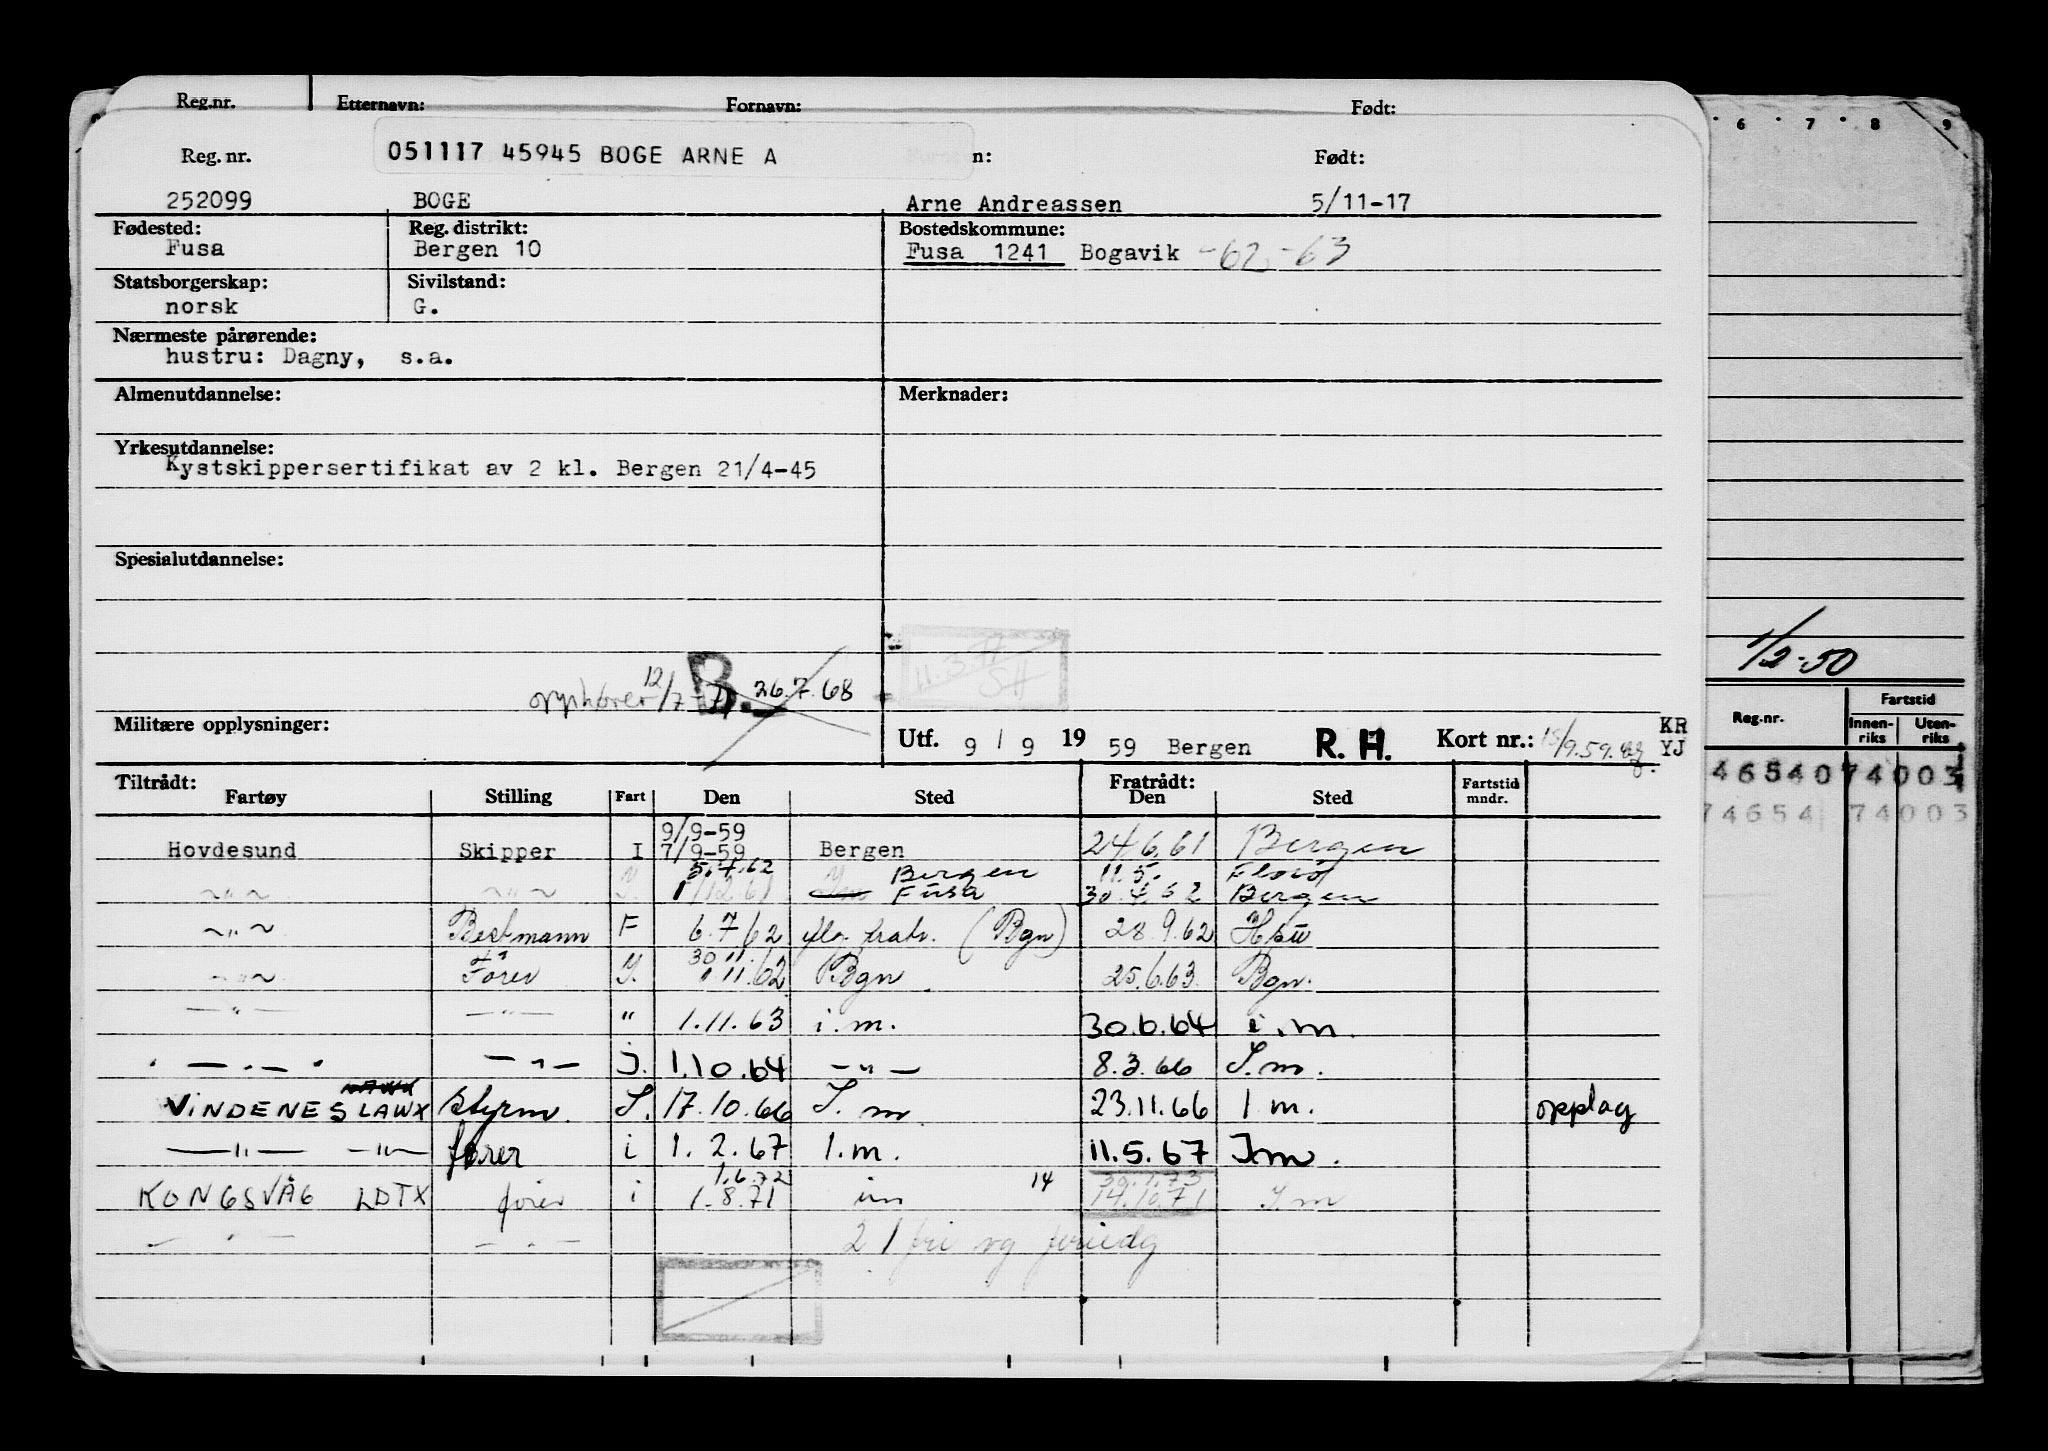 Reg.nr. Etternavn: Fornavn: Født:
Reg. nr. 051117 45945 BOGE ARNE A n: Født:
252099 BOGE Arne Andreassen 5/11-17
Fødested: Reg. distrikt: Bostedskommune:
Fusa Bergen 10 Fusa 1241 Bogavik -62 -63
Statsborgerskap: Sivilstand:
norsk G.
Nærmeste pårørende:
hustru: Dagny, s.a.
Almenutdannelse: Merknader:
Yrkesutdannelse:
Kystskippersertifikat av 2 kl. Bergen 21/4-45
Spesialutdannelse:
11.3.77 SH
opphører 12/7-71 B. 26.7.68
Militære opplysninger: Utf. 9 / 9 19 59 Bergen R. H. Kort nr.: 15/9.59. KR YJ
Tiltrådt: Fratrådt:
Fartøy Stilling Fart Den Sted Den Sted Fartstid mndr.
Hovdesund Skipper I 9/9-59 7/9-59 Bergen 24.6.61 Bergen
-"- -"- 5.7.62 1/12.61 Bergen Fusa 11.5. 30.4.62 Florø Bergen
-"- Bestmann F 6.7.62 (Bgn) 28.9.62
-"- Fører 30.11. 1.11.62 Bgn 25.6.63. Bgn.
-"- -"- " 1.11.63 i.m. 30.6.64 i.m.
-"- -"- j. 1.10.64 -"- 8.3.66 I.m.
VINDENES LAWX Styrm. I. 17.10.66 I.m 23.11.66 I m. opplag
-"- -"- fører i 1.2.67 I.m. 11.5.67 I.m.
KONGSVÅG LDTX fører i 1.6.72 1.8.71 im 14 30.1.73 14.10.71 I.m
-"- -"- 21 fri og feriedg
6 7 8 9
1/2-50
Reg.nr. Fartstid
Innenriks Utenriks
46540 74003
74654 74003